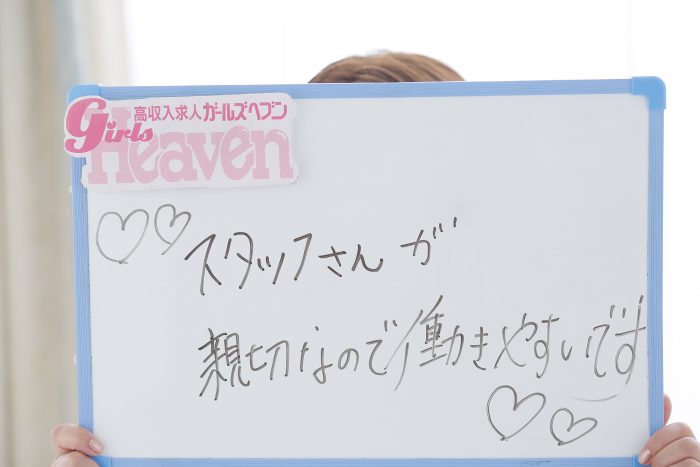 高収入求人ガールズヘブン
Girls
Heaven
スタッフさんが
親切なので働きやすいです